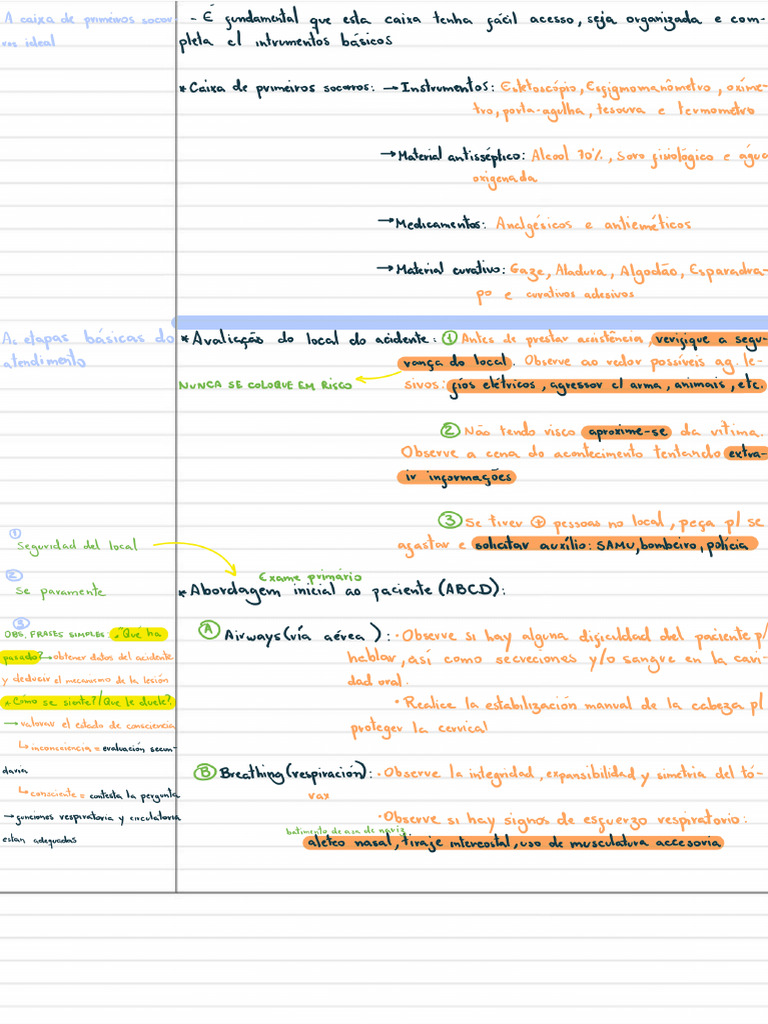 A caixa de primeiros socor
ros ideal
- É fundamental que esta caixa tenha fácil acesso, seja organizada e com-
pleta c/ intrumentos básicos
* Caixa de primeiros socorros: → Instrumentos: Estetoscópio, Esfigmomanômetro, oxíme-
tro, porta-agulha, tesoura e termometro
→ Material antisséptico: Alcool 70%, Soro fisiológico e água
oxigenada
→ Medicamentos: Analgésicos e antieméticos
→ Material curativo: Gaze, Atadura, Algodão, Esparadra-
po e curativos adesivos
As etapas básicas do
atendimento
* Avaliação do local do acidente: ① Antes de prestar assistência, verifique a segu-
rança do local. Observe ao redor possíveis ag. le-
NUNCA SE COLOQUE EM RISCO
sivos: fios elétricos, agressor c/ arma, animais, etc.
② Não tendo risco aproxime-se da vítima.
Observe a cena do acontecimento tentando extra-
ir informações
③ Se tiver ⊕ pessoas no local, peça p/ se
afastar e solicitar auxílio: SAMU, bombeiro, polícia
①
Seguridad del local
②
Se paramente
Exame primário
* Abordagem inicial ao paciente (ABCD):
③
OBS, FRASES SIMPLES: "Qué ha
pasado? → obtener datos del acidente
y deducir el mecanismo de la lesión
* Cómo se siente?/Que le duele?
→ valorar el estado de consciencia
↳ inconciencia = evaluación secun-
daria
↳ consciente = contesta la pergunta
→ funciones respiratoria y circulatoria
estan adequadas
Ⓐ Airways (vía aérea): • Observe si hay alguna dificuldad del paciente p/
hablar, así como secreciones y/o sangre en la cavi-
dad oral.
• Realice la estabilización manual de la cabeza p/
proteger la cervical
Ⓑ Breathing (respiración): • Observe la integridad, expansibilidad y simetria del tó-
rax
• Observe si hay signos de esfuerzo respiratorio:
batimento de asa de nariz
aleteo nasal, tiraje intercostal, uso de musculatura accesoria